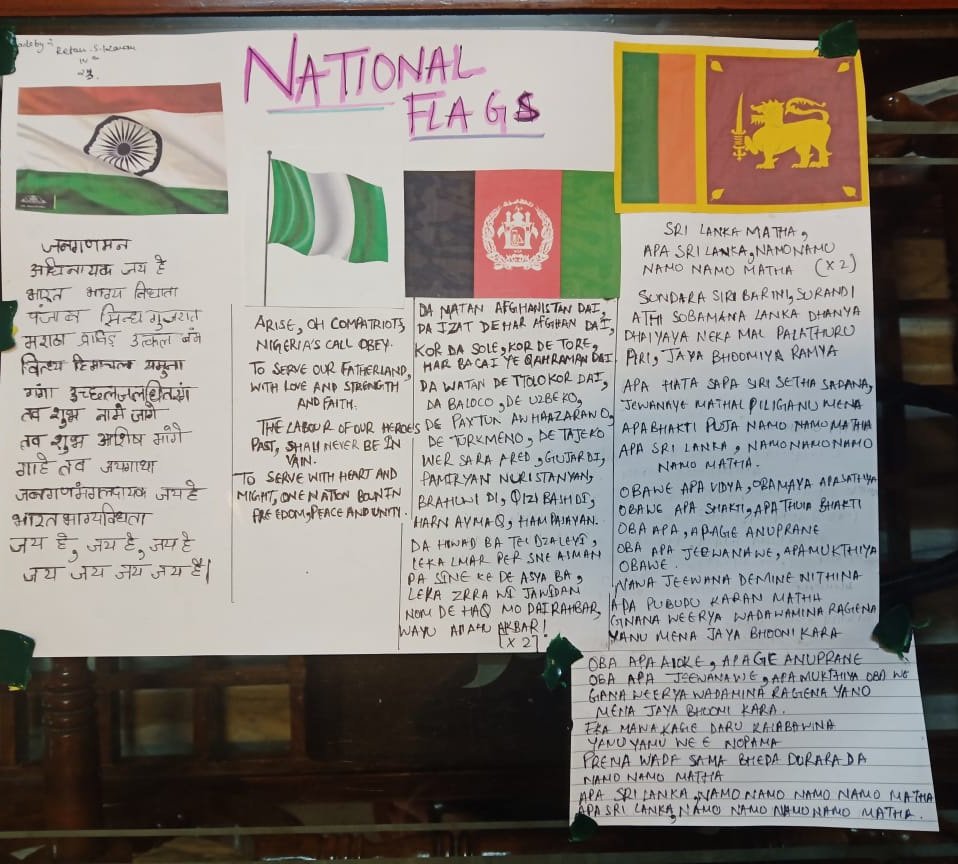 Made by :-
IV
NATIONAL
FLAGS
जनगणमन
अधिनायक जय है
भारत भाग्य विधाता
पंजाब सिन्ध गुजरात
मराठा उत्कल बंग
विन्ध्य हिमाचल यमुना
गंगा उच्छलजलधितरंग
तव शुभ नामे जागे
तव शुभ आशिष मांगे
गाहे तव जयगाथा
जनगणमंगलदायक जय हे
भारतभाग्यविधाता
जय हे, जय हे, जय हे
जय जय जय जय हे।
ARISE, OH COMPATRIOTS,
NIGERIA'S CALL OBEY.
TO SERVE OUR FATHERLAND,
WITH LOVE AND STRENGTH
AND FAITH.
THE LABOUR OF OUR HEROES
PAST, SHALL NEVER BE IN
VAIN.
TO SERVE WITH HEART AND
MIGHT, ONE NATION BOUN IN
FREEDOM, PEACE AND UNITY.
DA WATAN AFGHANISTAN DAI,
DA IZAT DE HAR AFGHAN DAI,
KOR DA SOLE, KOR DE TORE,
HAR BACAI YE QAHRAMAN DAI
DA WATAN DE TTOLO KOR DAI,
DA BALOCO, DE UZBEKO,
DE PAXTUN AW HAAZARAN O,
DE TURKMENO, DE TAJEKO
WER SARA ARED, GUJAR DI,
PAMIRYAN NURISTANYAN,
BRAHUWI DI, QIZI BASH DI,
HARN AYMAQ, HAM PAJAYAN.
DA HIWAD BA TEL DZALEYI,
LEKA LMAR PER SNE ASMAN
PA SINE KE DE ASYA BA,
LEKA ZRRA WI JAWIDAN
NOM DE HAQ MO DAI RAHBAR,
WAYU ALLAHU AKBAR!
(X 2)
SRI LANKA MATHA,
APA SRI LANKA, NAMO NAMO
NAMO NAMO MATHA (X 2)
SUNDARA SIRI BARINI, SURANDI
ATHI SOBAMANA LANKA DHANYA
DHAIYAYA NEKA MAL PALATHURU
PIRI, JAYA BHOOMIYA RAMYA
APA HATA SAPA SIRI SETHA SADANA,
JEEWANAYE MATHAL PILIGANU MENA
APA BHAKTI PUJA NAMO NAMO MATHA
APA SRI LANKA, NAMO NAMO NAMO
NAMO MATHA.
OBAWE APA VIDYA, OBAMAYA APA SATHYA
OBAWE APA SHAKTI, APA THULA BHAKTI
OBA APA, APAGE ANUPRANE
OBA APA JEEWANAWE, APAMUKTHIYA
OBAWE.
NAWA JEEWANA DEMINE NITHINA
APA PUBUDU KARAN MATHA
GNANA WEERYA WADAWAMINA RAGENA
YANU MENA JAYA BHOONI KARA
OBA APA ALOKE, APAGE ANUPRANE
OBA APA JEEWANAWE, APAMUKTHIYA OBA WE
GIANA WEERYA WADAMINA RAGENA YANO
MENA JAYA BHOONI KARA.
EKA MAWAKAGE DARU KALABAWINA
YANU YAMU WE E NOPAMA
PRENA WADA SAMA BHEDA DURARA DA
NAMO NAMO MATHA
APA SRI LANKA, NAMO NAMO NAMO NAMO MATHA
APA SRI LANKA, NAMO NAMO NAMO NAMO MATHA.